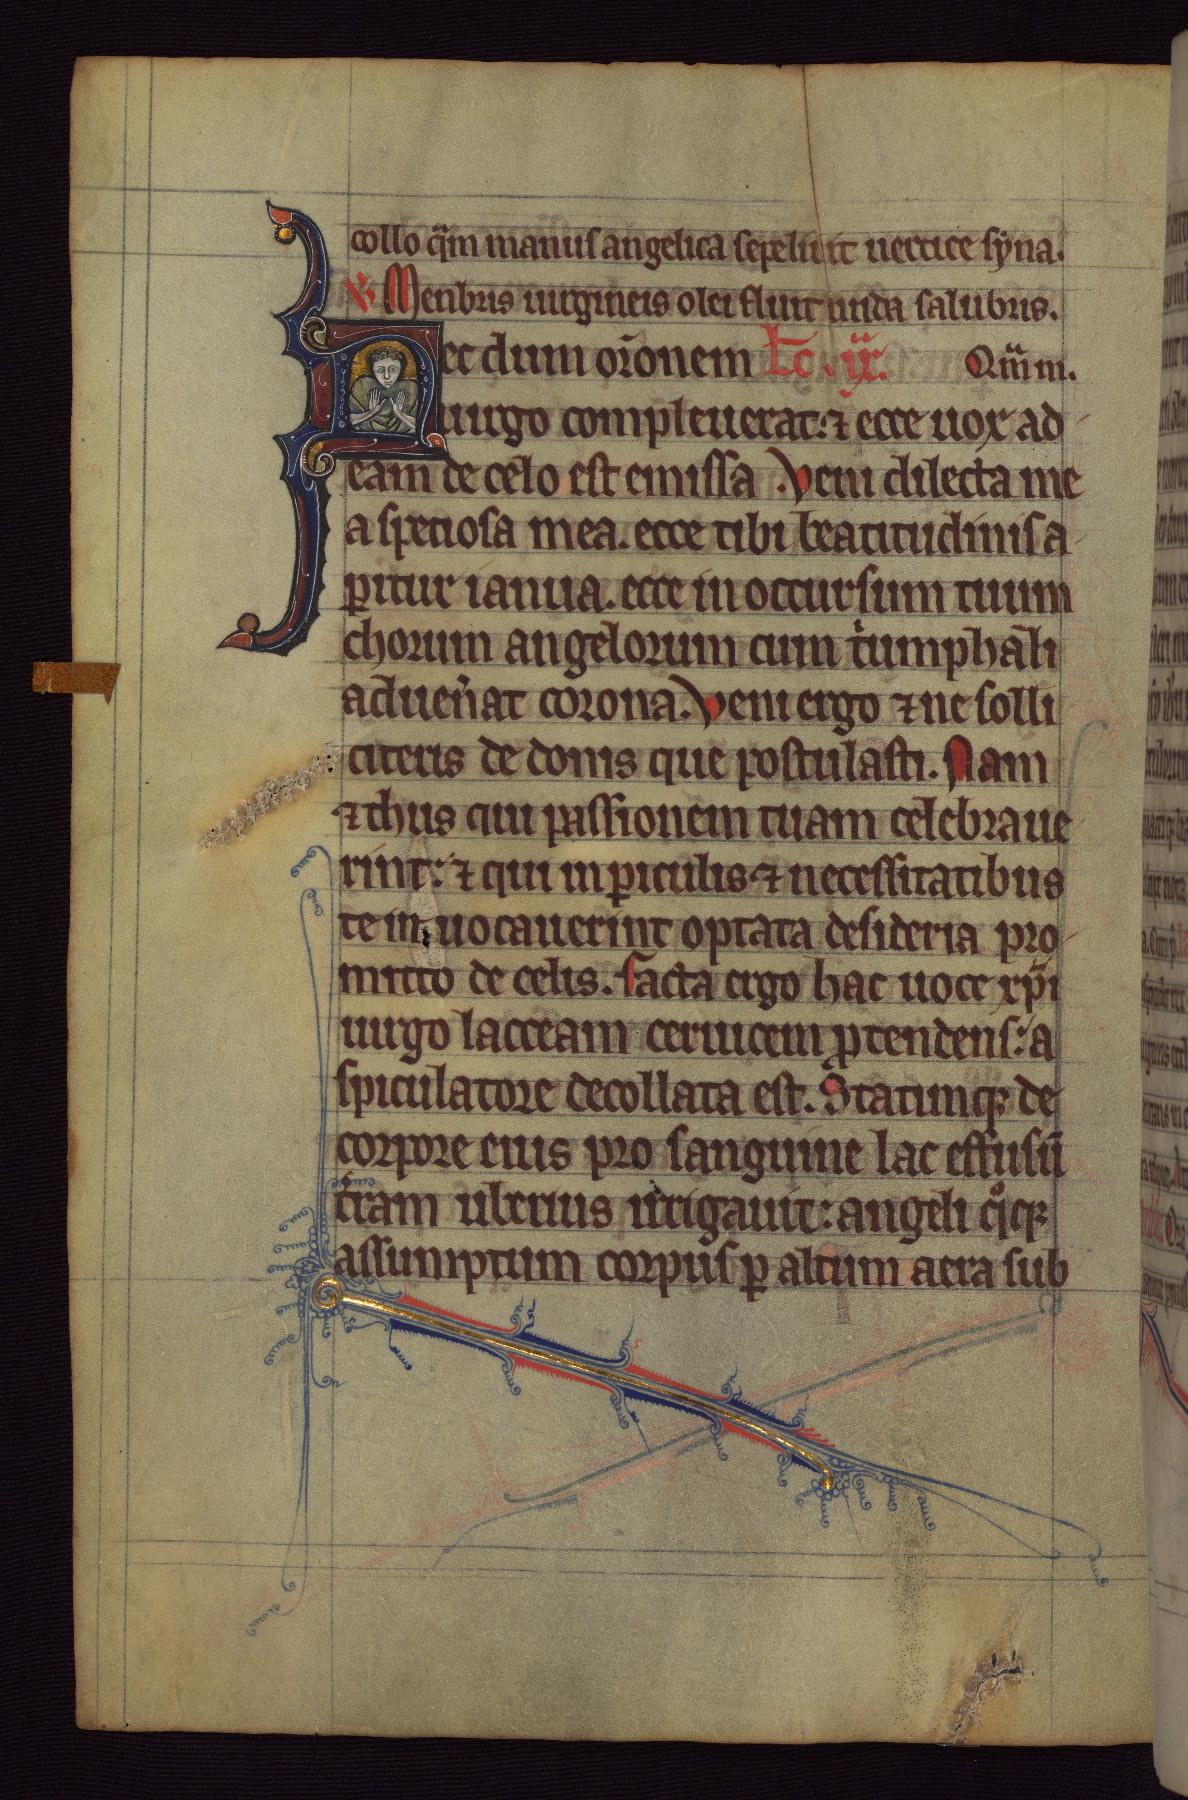 collo q̄m manus angelica sepeliuit uertice syna.
℣ Menbris uirgineis olei fluit unda salubris.
Nec dum or̄onem Lc̄. ix. Qm̄
uirgo compleuerat: ⁊ ecce uox ad
eam de celo est emissa. Veni dilecta me
a spetiosa mea. ecce tibi beatitudinis a
ꝑitur ianua. ecce in occursum tuum
chorum angelorum cum tͥumphali
adueñat corona. Veni ergo ⁊ ne solli
citeris de donis que postulasti. Nam
⁊ thus qui passionem tuam celebraue
rint: ⁊ qui in ꝑiculis ⁊ necessitatibus
te inuocauerint optata desideria pro
mitto de celis. Facta ergo hac uoce xp̄i
uirgo lacteam ceruicem ꝓtendens: a
spiculatore decollata est. Statimqꝫ de
corpore eius pro sanguine lac effusū
t̄ram uberius irrigauit: angeli qͦqꝫ
assumptum corpus ꝑ altum aera sub